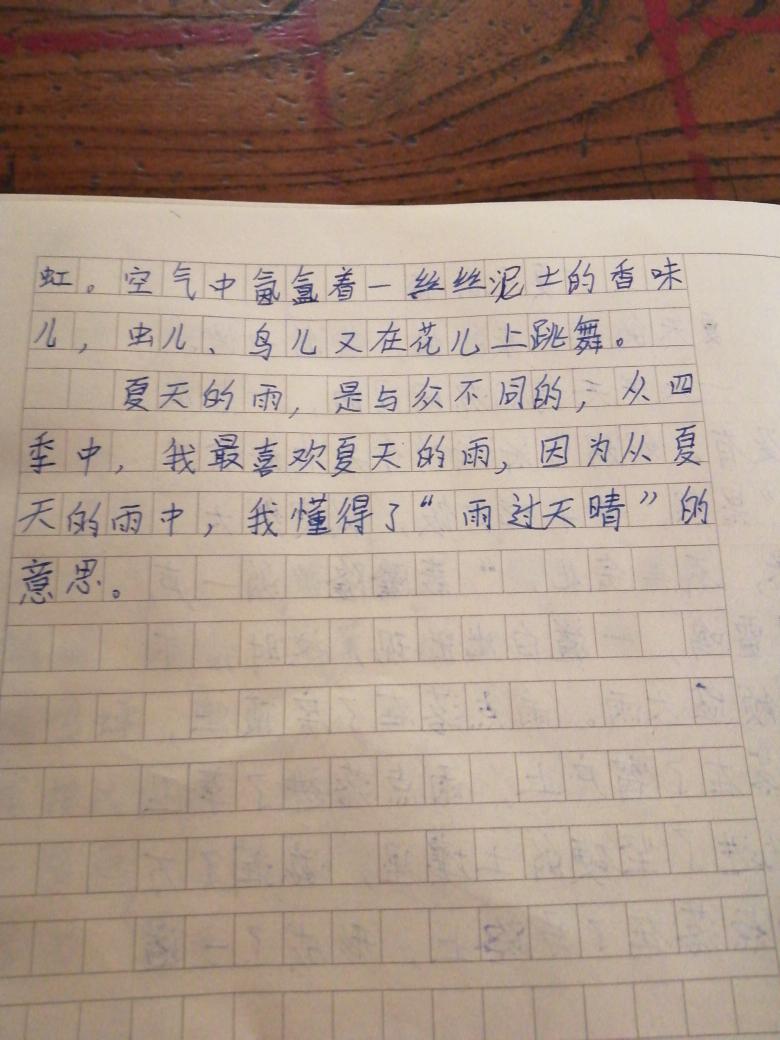 虹。空气中氤氲着一丝丝泥土的香味
儿，虫儿、鸟儿又在花儿上跳舞。
夏天的雨，是与众不同的，从四
季中，我最喜欢夏天的雨，因为从夏
天的雨中，我懂得了“雨过天晴”的
意思。